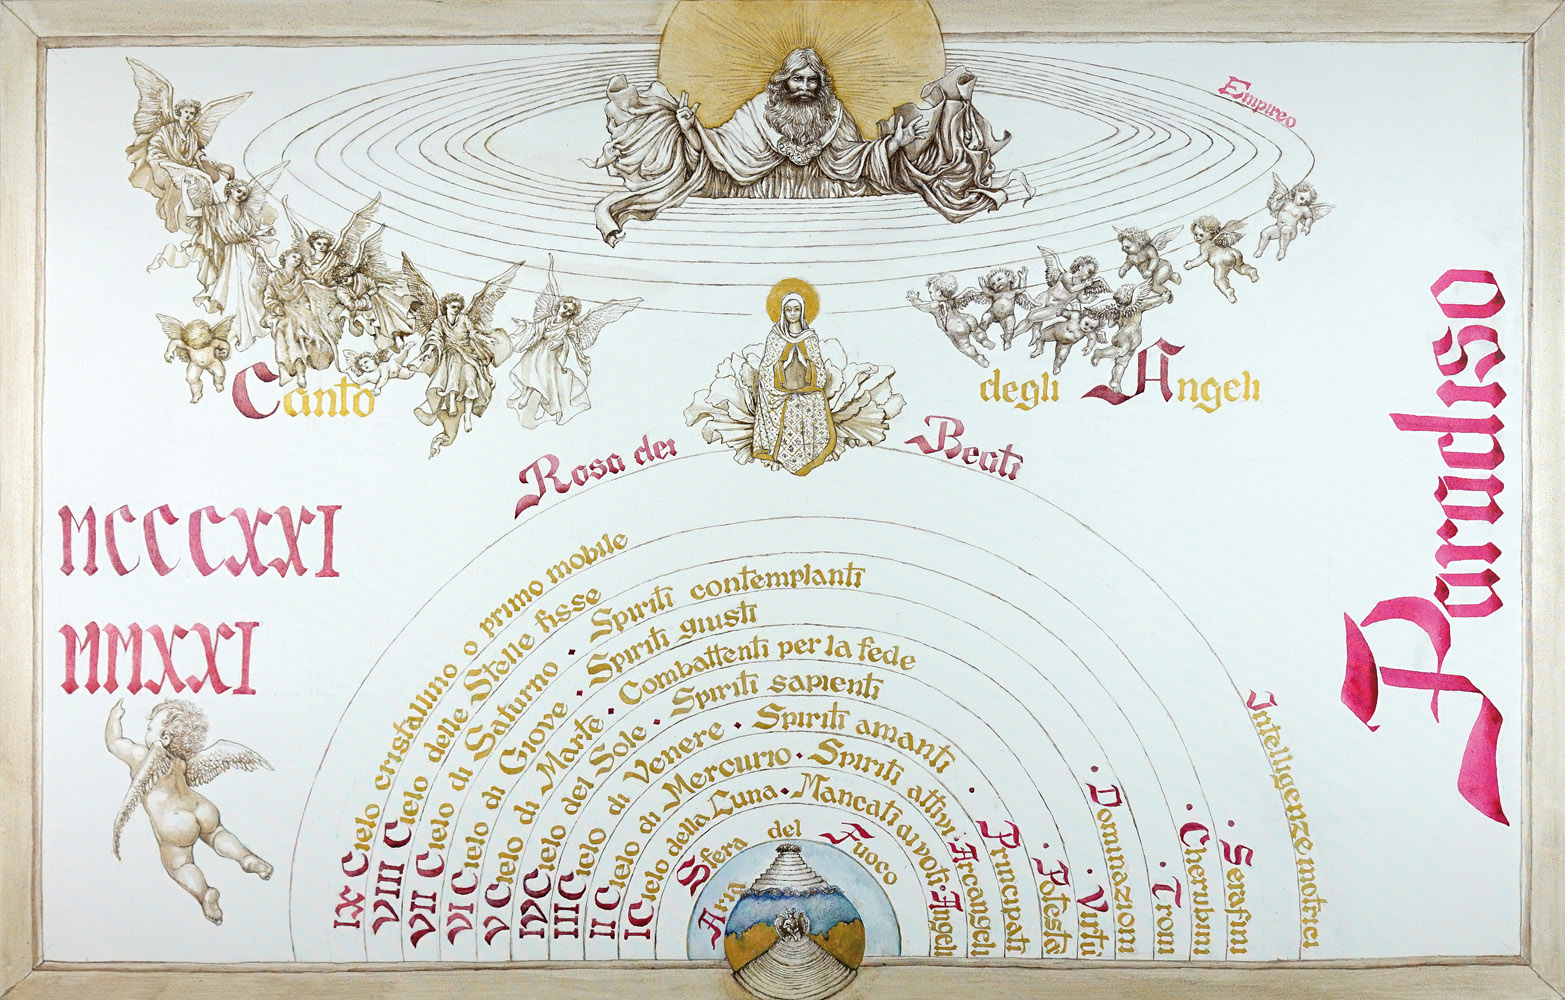 Empireo
Canto degli Angeli
Rosa dei Beati
Paradiso
MCCCXXI
MMXXI
IX Cielo cristallino o primo mobile
VIII Cielo delle Stelle fisse
VII Cielo di Saturno · Spiriti contemplanti
VI Cielo di Giove · Spiriti giusti
V Cielo di Marte · Combattenti per la fede
IV Cielo del Sole · Spiriti sapienti
III Cielo di Venere · Spiriti amanti
II Cielo di Mercurio · Spiriti attivi · Arcangeli
I Cielo della Luna · Mancati ai voti · Angeli
Sfera del Fuoco
Aria
· Principati
· Potestà
· Virtù
· Dominazioni
· Troni
· Cherubini
· Serafini
Intelligenze motrici